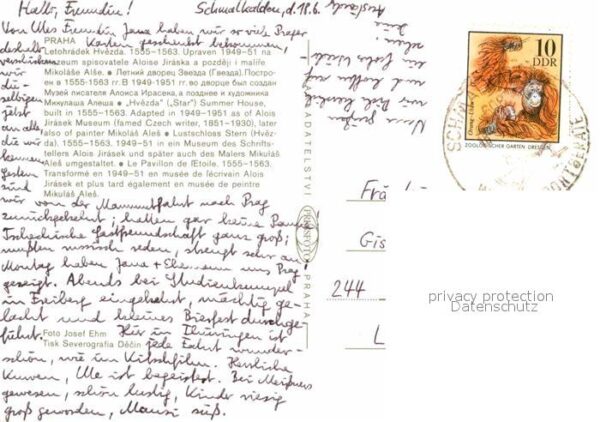 Hallo, Freundin! Schmalkalden, d. 18.6.
Von Ules Freundin Jana haben wir so viele Prager
PRAHA Karten geschenkt bekommen,
deshalb
verschicken
wir
die-
selbigen
jetzt
an alle,
die wir
kennen.
Gestern
sind
Letohrádek Hvězda. 1555-1563. Upraven 1949-51 na
muzeum spisovatele Aloise Jiráska a později i malíře
Mikoláše Alše. • Летний дворец Звезда (Гвезда). Постро-
ен в 1555-1563 гг. В 1949-1951 гг. во дворце был создан
Музей писателя Алоиса Ирасека, а позднее и художника
Микулаша Алеша • „Hvězda" („Star") Summer House,
built in 1555-1563. Adapted in 1949-1951 as of Alois
Jirásek Museum (famed Czech writer, 1851-1930), later
also of painter Mikoláš Aleš • Lustschloss Stern (Hvěz-
da). 1555-1563. 1949-51 in ein Museum des Schrift-
stellers Alois Jirásek und später auch des Malers Mikuláš
Aleš umgestaltet. • Le Pavillon de l'Étoile. 1555-1563.
Transformé en 1949-51 en musée de l'écrivain Alois
Jirásek et plus tard également en musée de peintre
Mikuláš Aleš.
wir von der Mammutfahrt nach Prag
zurückgekehrt; hatten gar keine Panne
Tschechische Gastfreundschaft ganz groß;
mußten russisch reden, strengt sehr an
Montag haben Jana + Ehemann uns Prag
gezeigt. Abends bei Studienkumpel
in Freiberg eingekehrt, mächtig ge-
lacht und kleines Bierfest durchge-
führt. Hier in Thüringen ist
Foto Josef Ehm
Tisk Severografia Děčín
jede Fahrt wunder-
schön, wie im Kitschfilm. Herrliche
Kurven, Ule ist begeistert. Bei Meißners
gewesen, schön lustig, Kinder riesig
groß geworden, Mausi süß.
NAKLADATELSTVÍ
PRESSFOTO
PRAHA
10
DDR
ZOOLOGISCHER GARTEN DRESDEN
Gis
244
L
privacy protection
Datenschutz